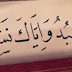 بُدُ وَإِيَّاكَ نَسـ